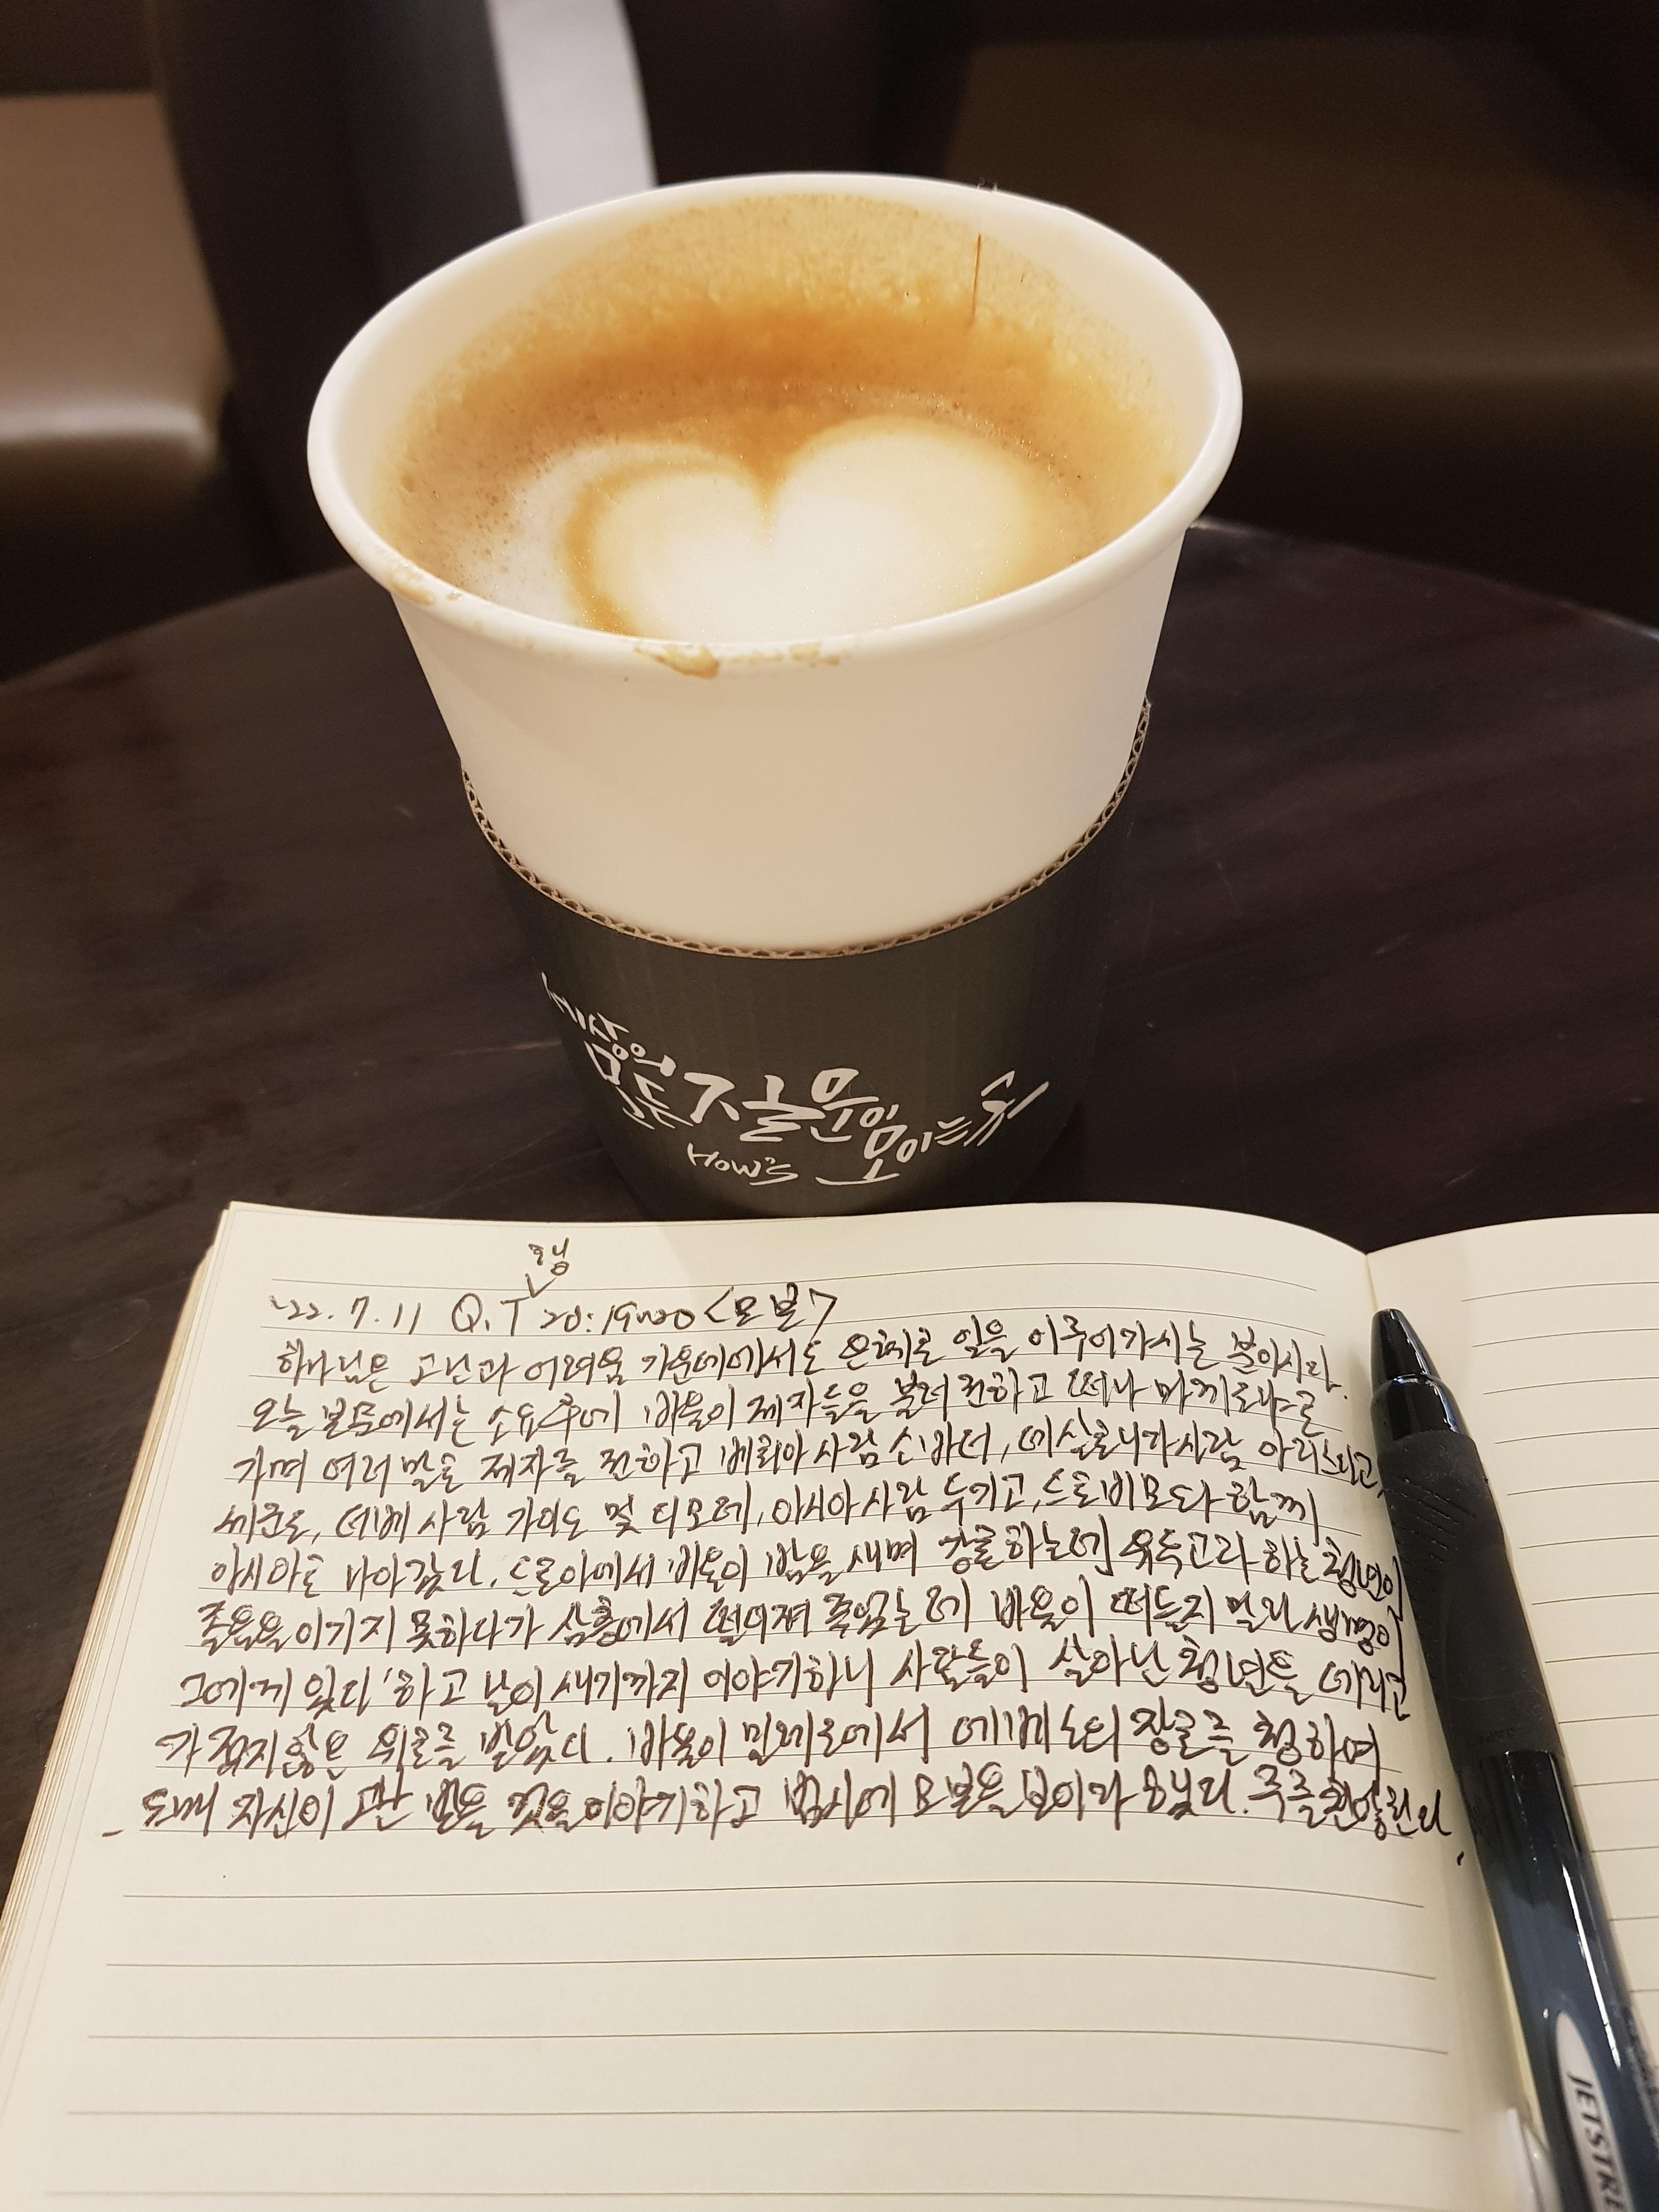 세상의
모든 젊은이
How's 모이는
행
'22. 7. 11 Q.T 20:19~20 <모본>
하나님은 고난과 어려움 가운데에서도 은혜로 일을 이루어가시는 분이시다.
오늘 본문에서는 소요 후에 바울이 제자들을 불러 권하고 떠나 마게도냐로
가며 여러 말로 제자를 권하고 베뢰아 사람 소바더, 데살로니가 사람 아리스다고,
세군도, 더베 사람 가이오 및 디모데, 아시아 사람 두기고, 드로비모와 함께
아시아로 나아갔다. 드로아에서 바울이 밤을 새며 강론하는데 유두고라 하는 청년이
졸음을 이기지 못하다가 삼층에서 떨어져 죽었는데 바울이 떠들지 말라 생명이
그에게 있다 '하고 날이 새기까지 이야기하니 사람들이 살아난 청년을 데리고
가 적지않은 위로를 받았다. 바울이 밀레도에서 에베소의 장로를 청하여
자신이 고난 받을 것을 이야기하고 범사에 모본을 보이라